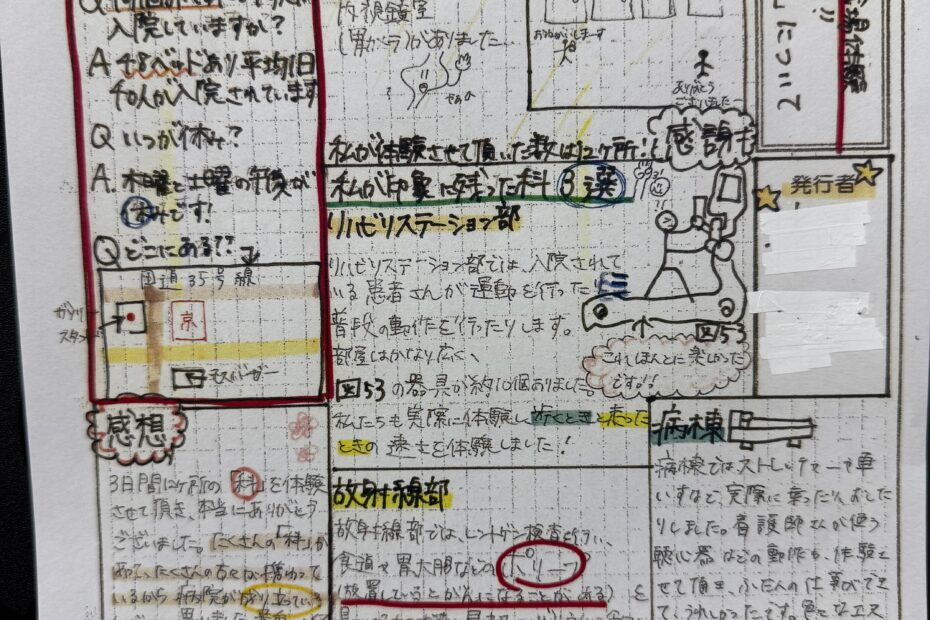 入院していますか?
A 48ベッドあり平均1日
40人が入院されています
Q いつが休み?
A. 木曜と土曜の午後が
休みです!
Qどこにある??
国道35号線
ガソリン
スタンド
京
モスバーガー
感想
3日間12ヶ所の「科」を体験
させて頂き、本当にありがとう
ございました。たくさんの「科」が
あって、たくさんの方々が携わって
いるから病院が成り立っている
内視鏡室
(胃カメラ)がありました
おねがいしまーす
ありがとう
ございました
私が体験させて頂いた数は12ヶ所!
感謝
私が印象に残った科 3選
リハビリステーション部
リハビリステーション部では、入院されて
いる患者さんが運動を行ったり
普段の動作を行ったりします。
部屋はかなり広く、
図53の器具が約10個ありました。
私たちも実際に体験し歩くときと走った
ときの速さを体験しました!
図53
これほんとに楽しかった
です!!
放射線部
放射線部では、レントゲン検査を行い、
食道や胃大腸などのポリープ
(放置しているとがんになることがある)を
について
発行者
病棟
病棟ではストレッチャーや車
いすなど、実際に乗ったり、おした
りしました。看護師さんが使う
聴心器などの動作も、体験さ
せて頂き、ふだんの仕事ができ
て、うれしかったです。